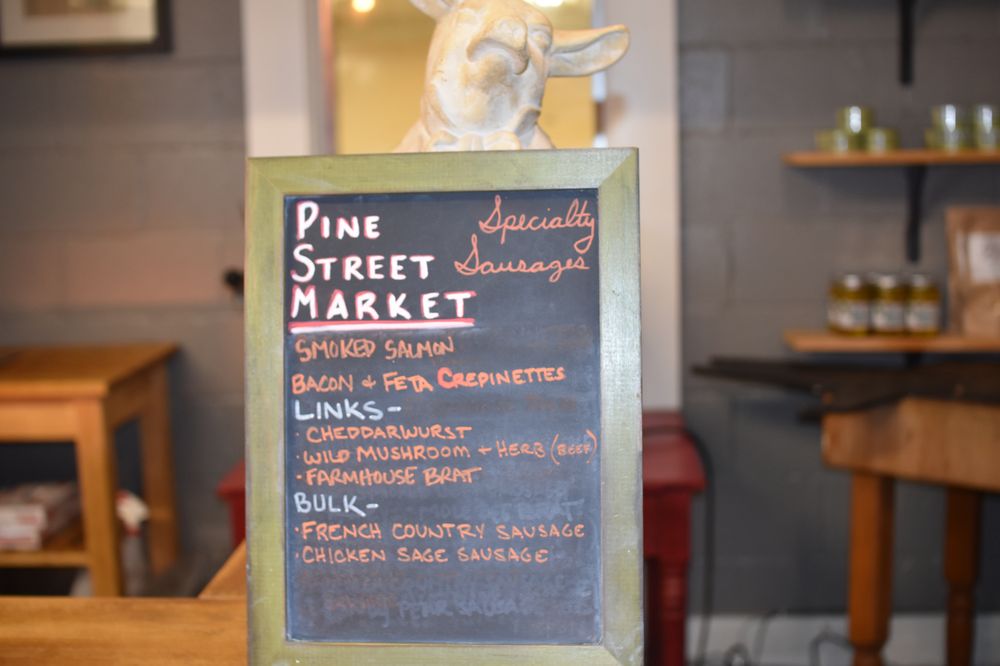 PINE
STREET
MARKET
Specialty
Sausages
SMOKED SALMON
BACON + FETA CREPINETTES
LINKS-
· CHEDDARWURST
· WILD MUSHROOM + HERB (BEEF)
· FARMHOUSE BRAT
BULK-
· FRENCH COUNTRY SAUSAGE
· CHICKEN SAGE SAUSAGE
PEAR SAUSAGE